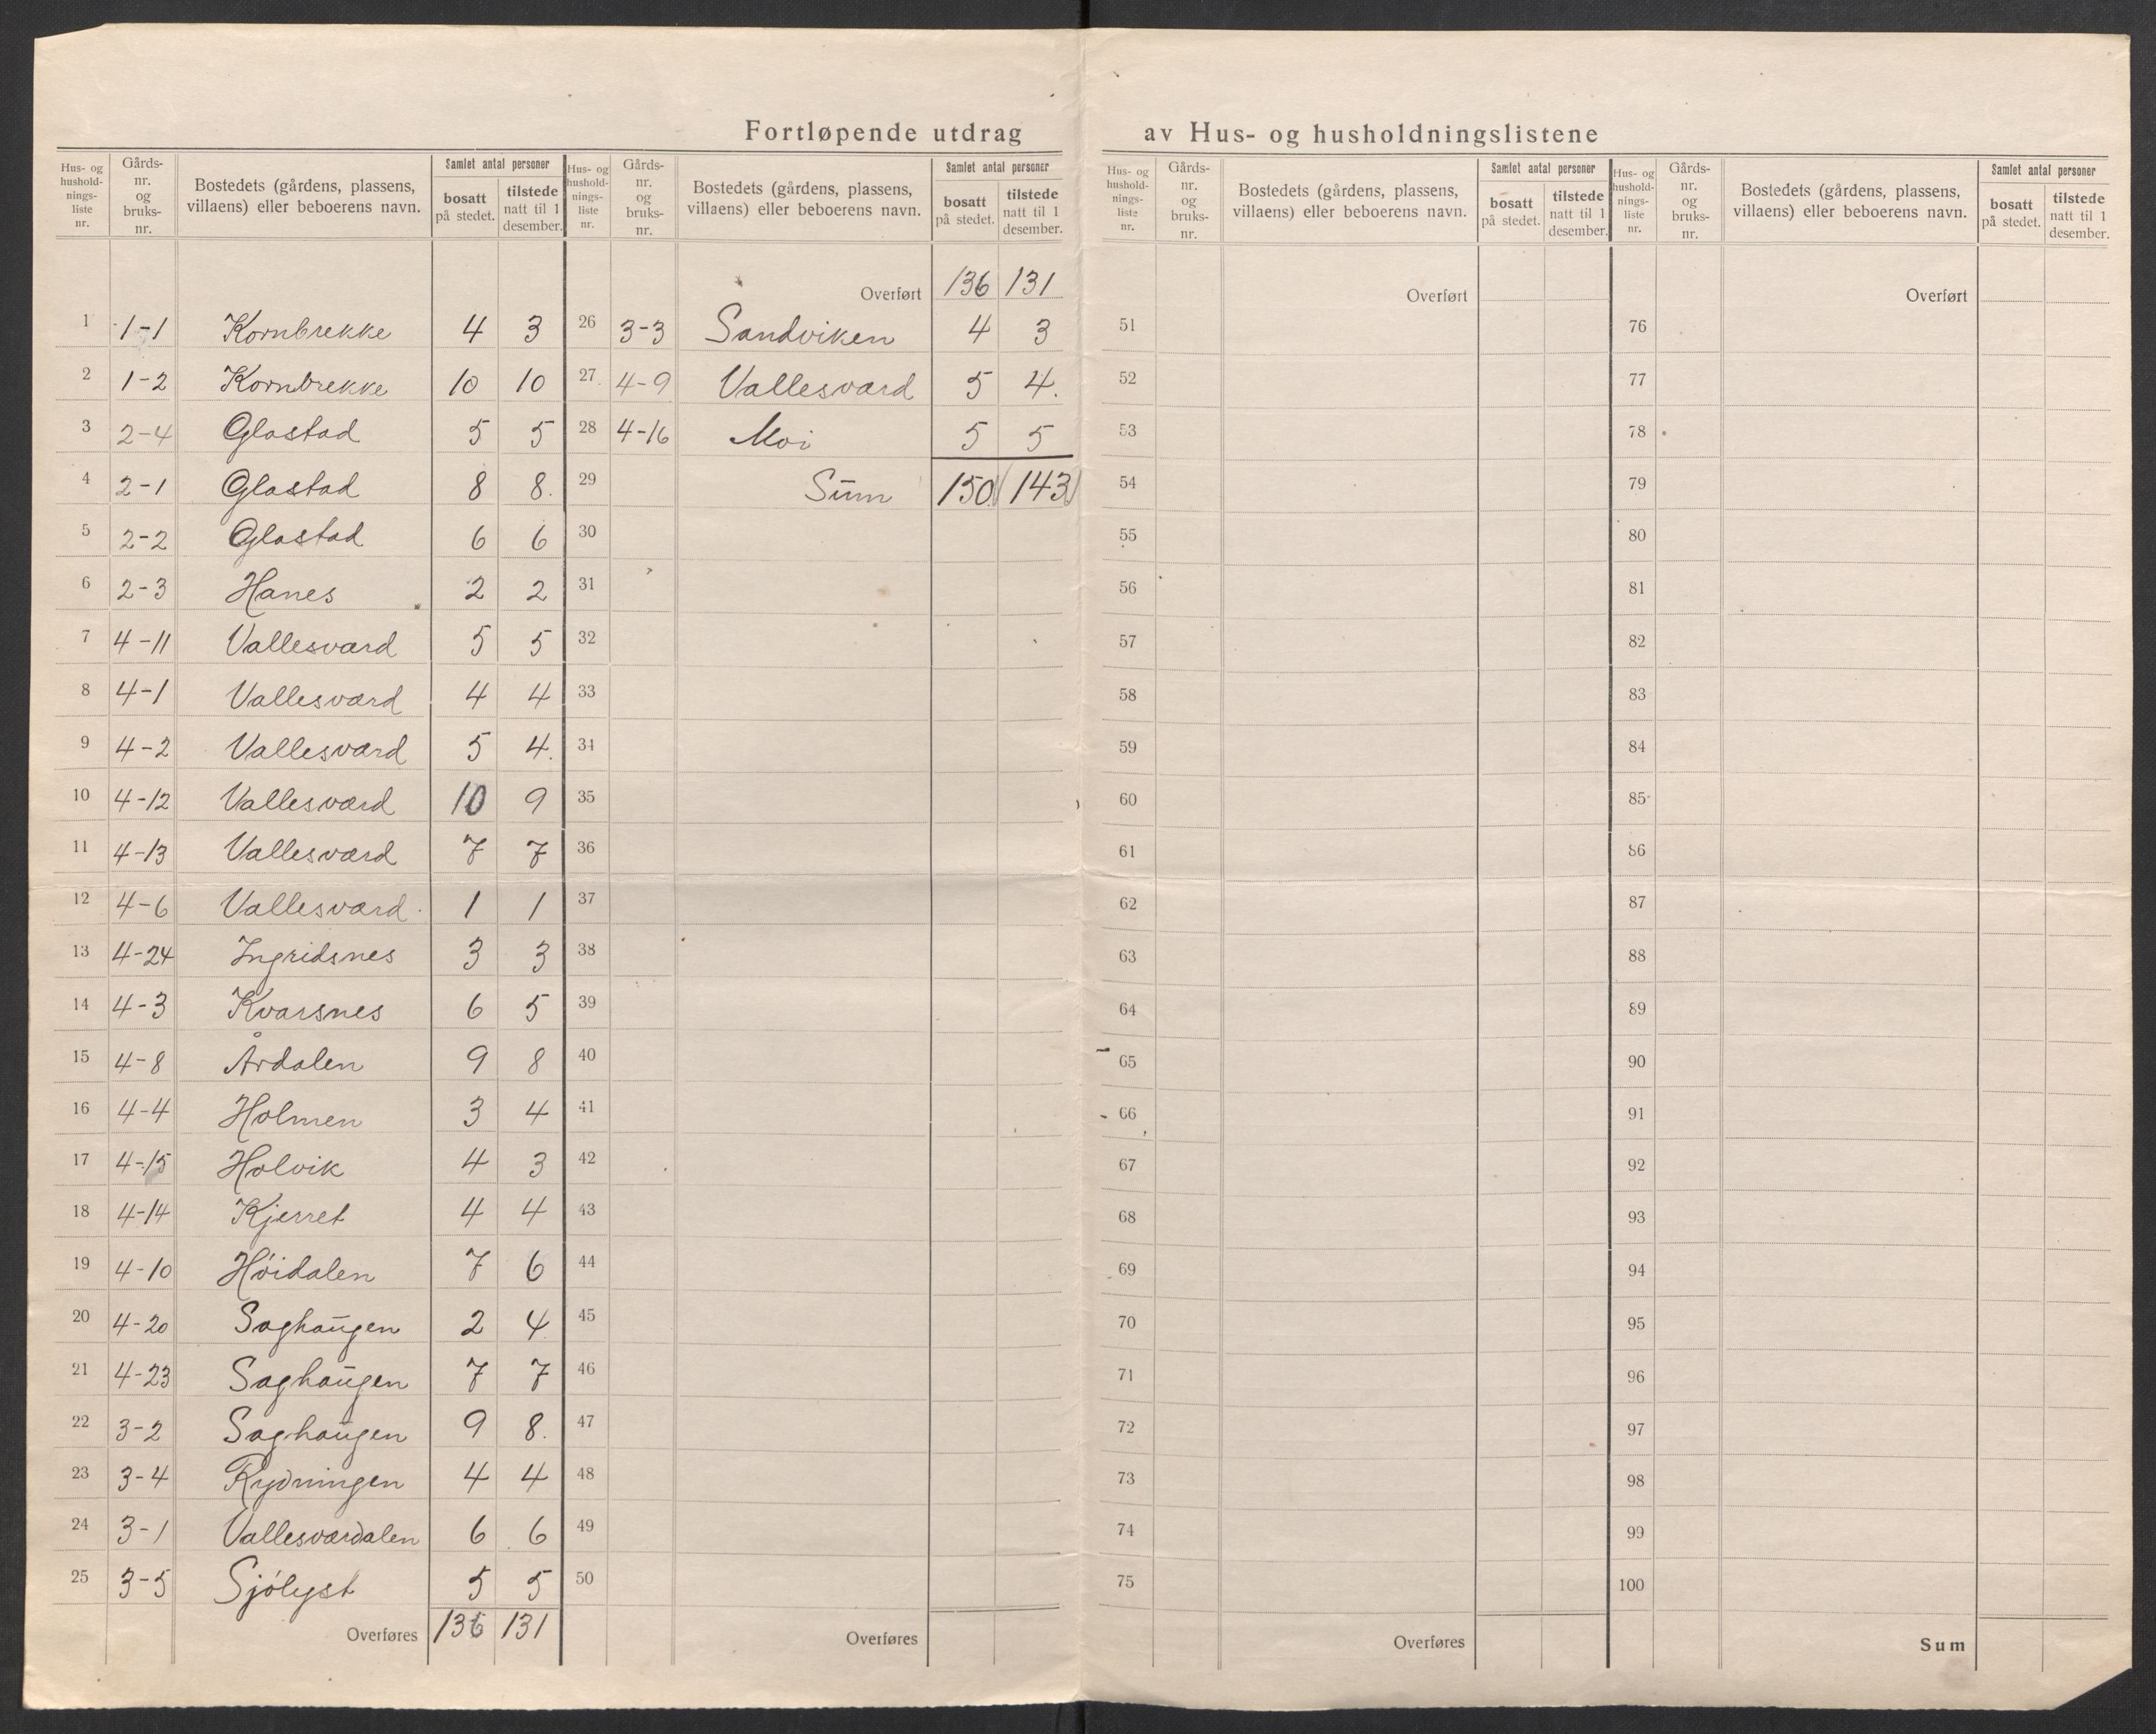 Fortløpende utdrag av Hus- og husholdningslistene
Hus- og husholdningsliste nr. | Gårds-nr. og bruks-nr. | Bostedets (gårdens, plassens, villaens) eller beboerens navn. | Samlet antal personer | bosatt på stedet. | tilstede natt til 1 desember.
1 1-1 Kornbrekke 4 3
2 1-2 Kornbrekke 10 10
3 2-4 Glastad 5 5
4 2-1 Glastad 8 8.
5 2-2 Glastad 6 6
6 2-3 Hanes 2 2
7 4-11 Vallesværd 5 5
8 4-1 Vallesværd 4 4
9 4-2 Vallesværd 5 4.
10 4-12 Vallesværd 10 9
11 4-13 Vallesværd 7 7
12 4-6 Vallesværd 1 1
13 4-24 Ingridsnes 3 3
14 4-3 Kvarsnes 6 5
15 4-8 Årdalen 9 8
16 4-4 Holmen 3 4
17 4-15 Holvik 4 3
18 4-14 Kjerret 4 4
19 4-10 Høidalen 7 6
20 4-20 Saghaugen 2 4
21 4-23 Saghaugen 7 7
22 3-2 Saghaugen 9 8.
23 3-4 Rydningen 4 4
24 3-1 Vallesværdalen 6 6
25 3-5 Sjølyst 5 5
Overføres 136 131
Hus- og husholdningsliste nr. | Gårds-nr. og bruks-nr. | Bostedets (gårdens, plassens, villaens) eller beboerens navn. | Samlet antal personer | bosatt på stedet. | tilstede natt til 1 desember.
Overført 136 131
26 3-3 Sandviken 4 3
27 4-9 Vallesværd 5 4.
28 4-16 Moi 5 5
29 Sum 150 143
30
31
32
33
34
35
36
37
38
39
40
41
42
43
44
45
46
47
48
49
50
Overføres
Hus- og husholdningsliste nr. | Gårds-nr. og bruks-nr. | Bostedets (gårdens, plassens, villaens) eller beboerens navn. | Samlet antal personer | bosatt på stedet. | tilstede natt til 1 desember.
Overført
51
52
53
54
55
56
57
58
59
60
61
62
63
64
65
66
67
68
69
70
71
72
73
74
75
Overføres
Hus- og husholdningsliste nr. | Gårds-nr. og bruks-nr. | Bostedets (gårdens, plassens, villaens) eller beboerens navn. | Samlet antal personer | bosatt på stedet. | tilstede natt til 1 desember.
Overført
76
77
78
79
80
81
82
83
84
85
86
87
88
89
90
91
92
93
94
95
96
97
98
99
100
Sum